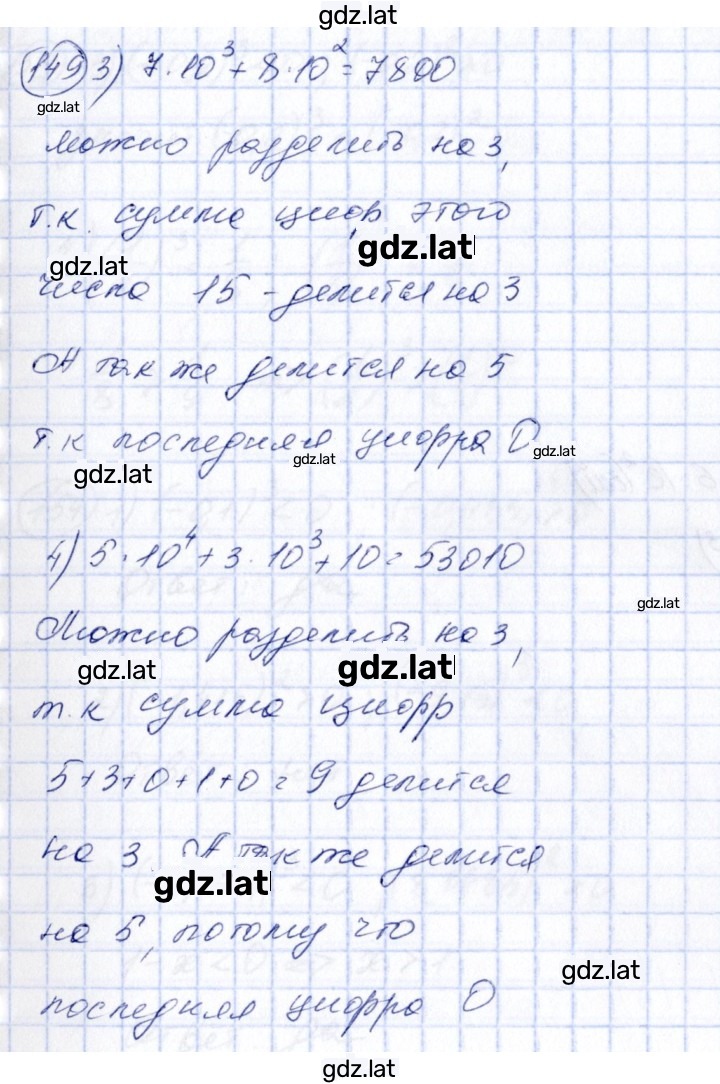 gdz.lat
149 3) 7·10³ + 8·10² = 7800
gdz.lat
можно разделить на 3,
т.к. сумма цифр этого
gdz.lat
gdz.lat
числа 15 - делится на 3
А так же делится на 5
т.к последняя цифра 0
gdz.lat
gdz.lat
gdz.lat
4) 5·10⁴ + 3·10³ + 10 = 53010
gdz.lat
Можно разделить на 3,
gdz.lat
gdz.lat
т.к сумма цифр
5+3+0+1+0 = 9 делится
на 3 А так же делится
gdz.lat
на 5, потому что
gdz.lat
последняя цифра 0
gdz.lat